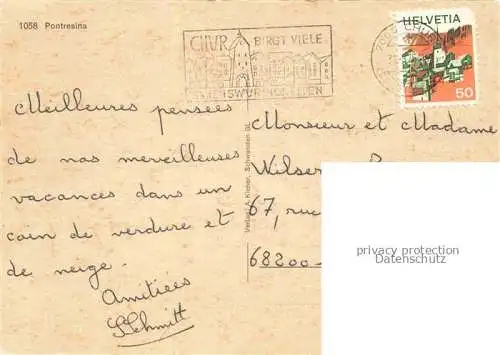 1058 Pontresina
CHUR BIRGT VIELE
HELVETIA
50
Meilleures pensées
de nos merveilleuses
vacances dans un
coin de verdure et
de neige.
Amitiées
Schmitt
Verlag A. Kicher, Schwanden GL
Monsieur et Madame
67, rue
68200
privacy protection
Datenschutz